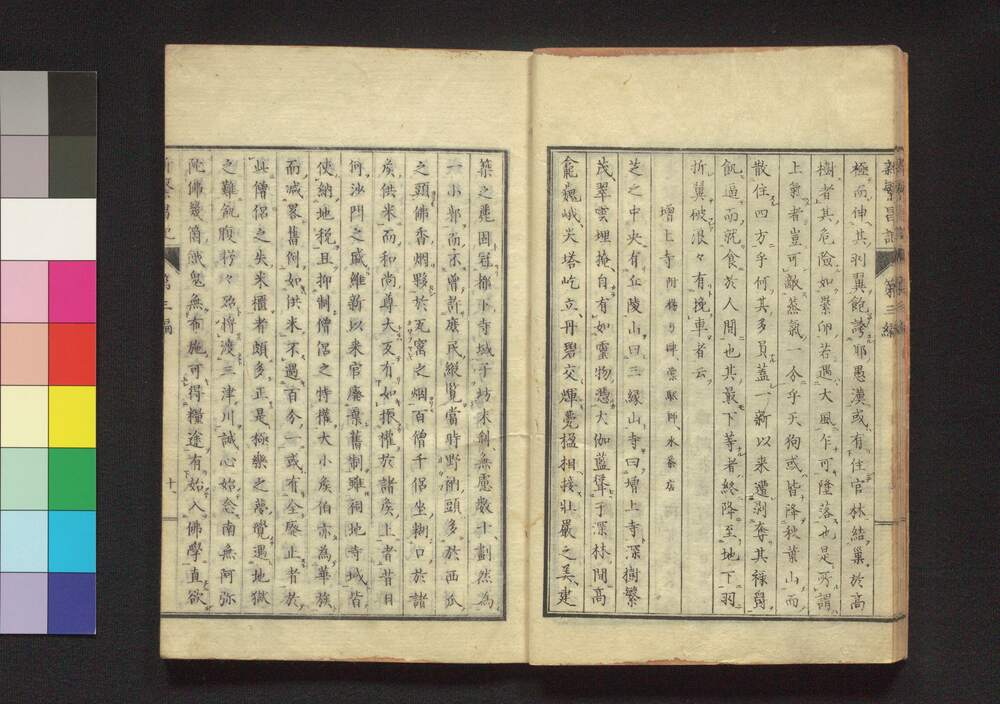 極而伸其羽翼飽誇耶愚漢或有住官林結巢於高
樹者其危險如累卵若遇大風乍可墮落也是所謂
上氣者豈可敵蒸氣一分乎天狗或皆降秋葉山而
散住四方乎何其多員蓋一新以来遭剝奪其祿
飢逼而就食於人間也其最下等者終降至地下羽
折翼破浪々有挽車者云
增上寺
芝之中央有丘陵山曰三緣山寺曰增上寺深樹繁
茂翠雲埋掩自有如靈物惹大伽藍聳于深林間高
龕巍峨尖塔屹立丹碧交煇甍楹相接壯嚴之美建
築之麗固冠都下寺城子坊末剎無慮數十劃然為
一小郭而不曾許庶民縱覧當時野酌頭多於西瓜
之頭佛香烟夥於瓦窰之烟百僧千侶坐糊口於諸
矦供米而和尚尊大又有如振權於諸矦上者昔日
何沙門之盛維新以来官廢棄舊制雖祠地寺域皆
使納地税且抑制僧侶之特權大小矦伯亦為華族
而减畧舊例如供米不過百分一或有全廢止者於
此僧侶之失米櫃者頗多正是極樂之夢覺遇地獄
之難飢腹枵々殆將渡三津川誠心始念南無阿弥
陀佛幾箇餓鬼無布施可得糧途有始入佛學直欲
新繁昌記 第三編 十一